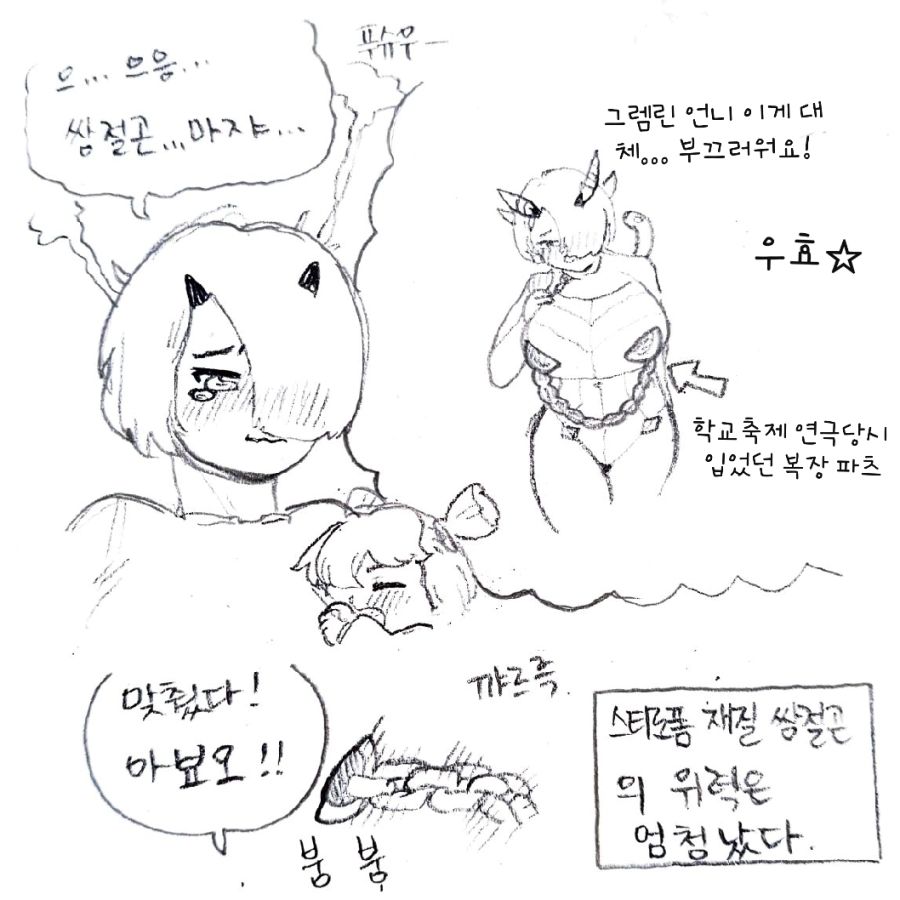 푸슈우—
으... 으응...
쌍절곤...마쟈...
그렘린 언니 이게 대
체... 부끄러워요!
우효☆
학교축제 연극당시
입었던 복장 파츠
꺄르륵.
맞췄다!
아뵤오!!
붕 붕
스티로폼 재질 쌍절곤
의 위력은
엄청났다.